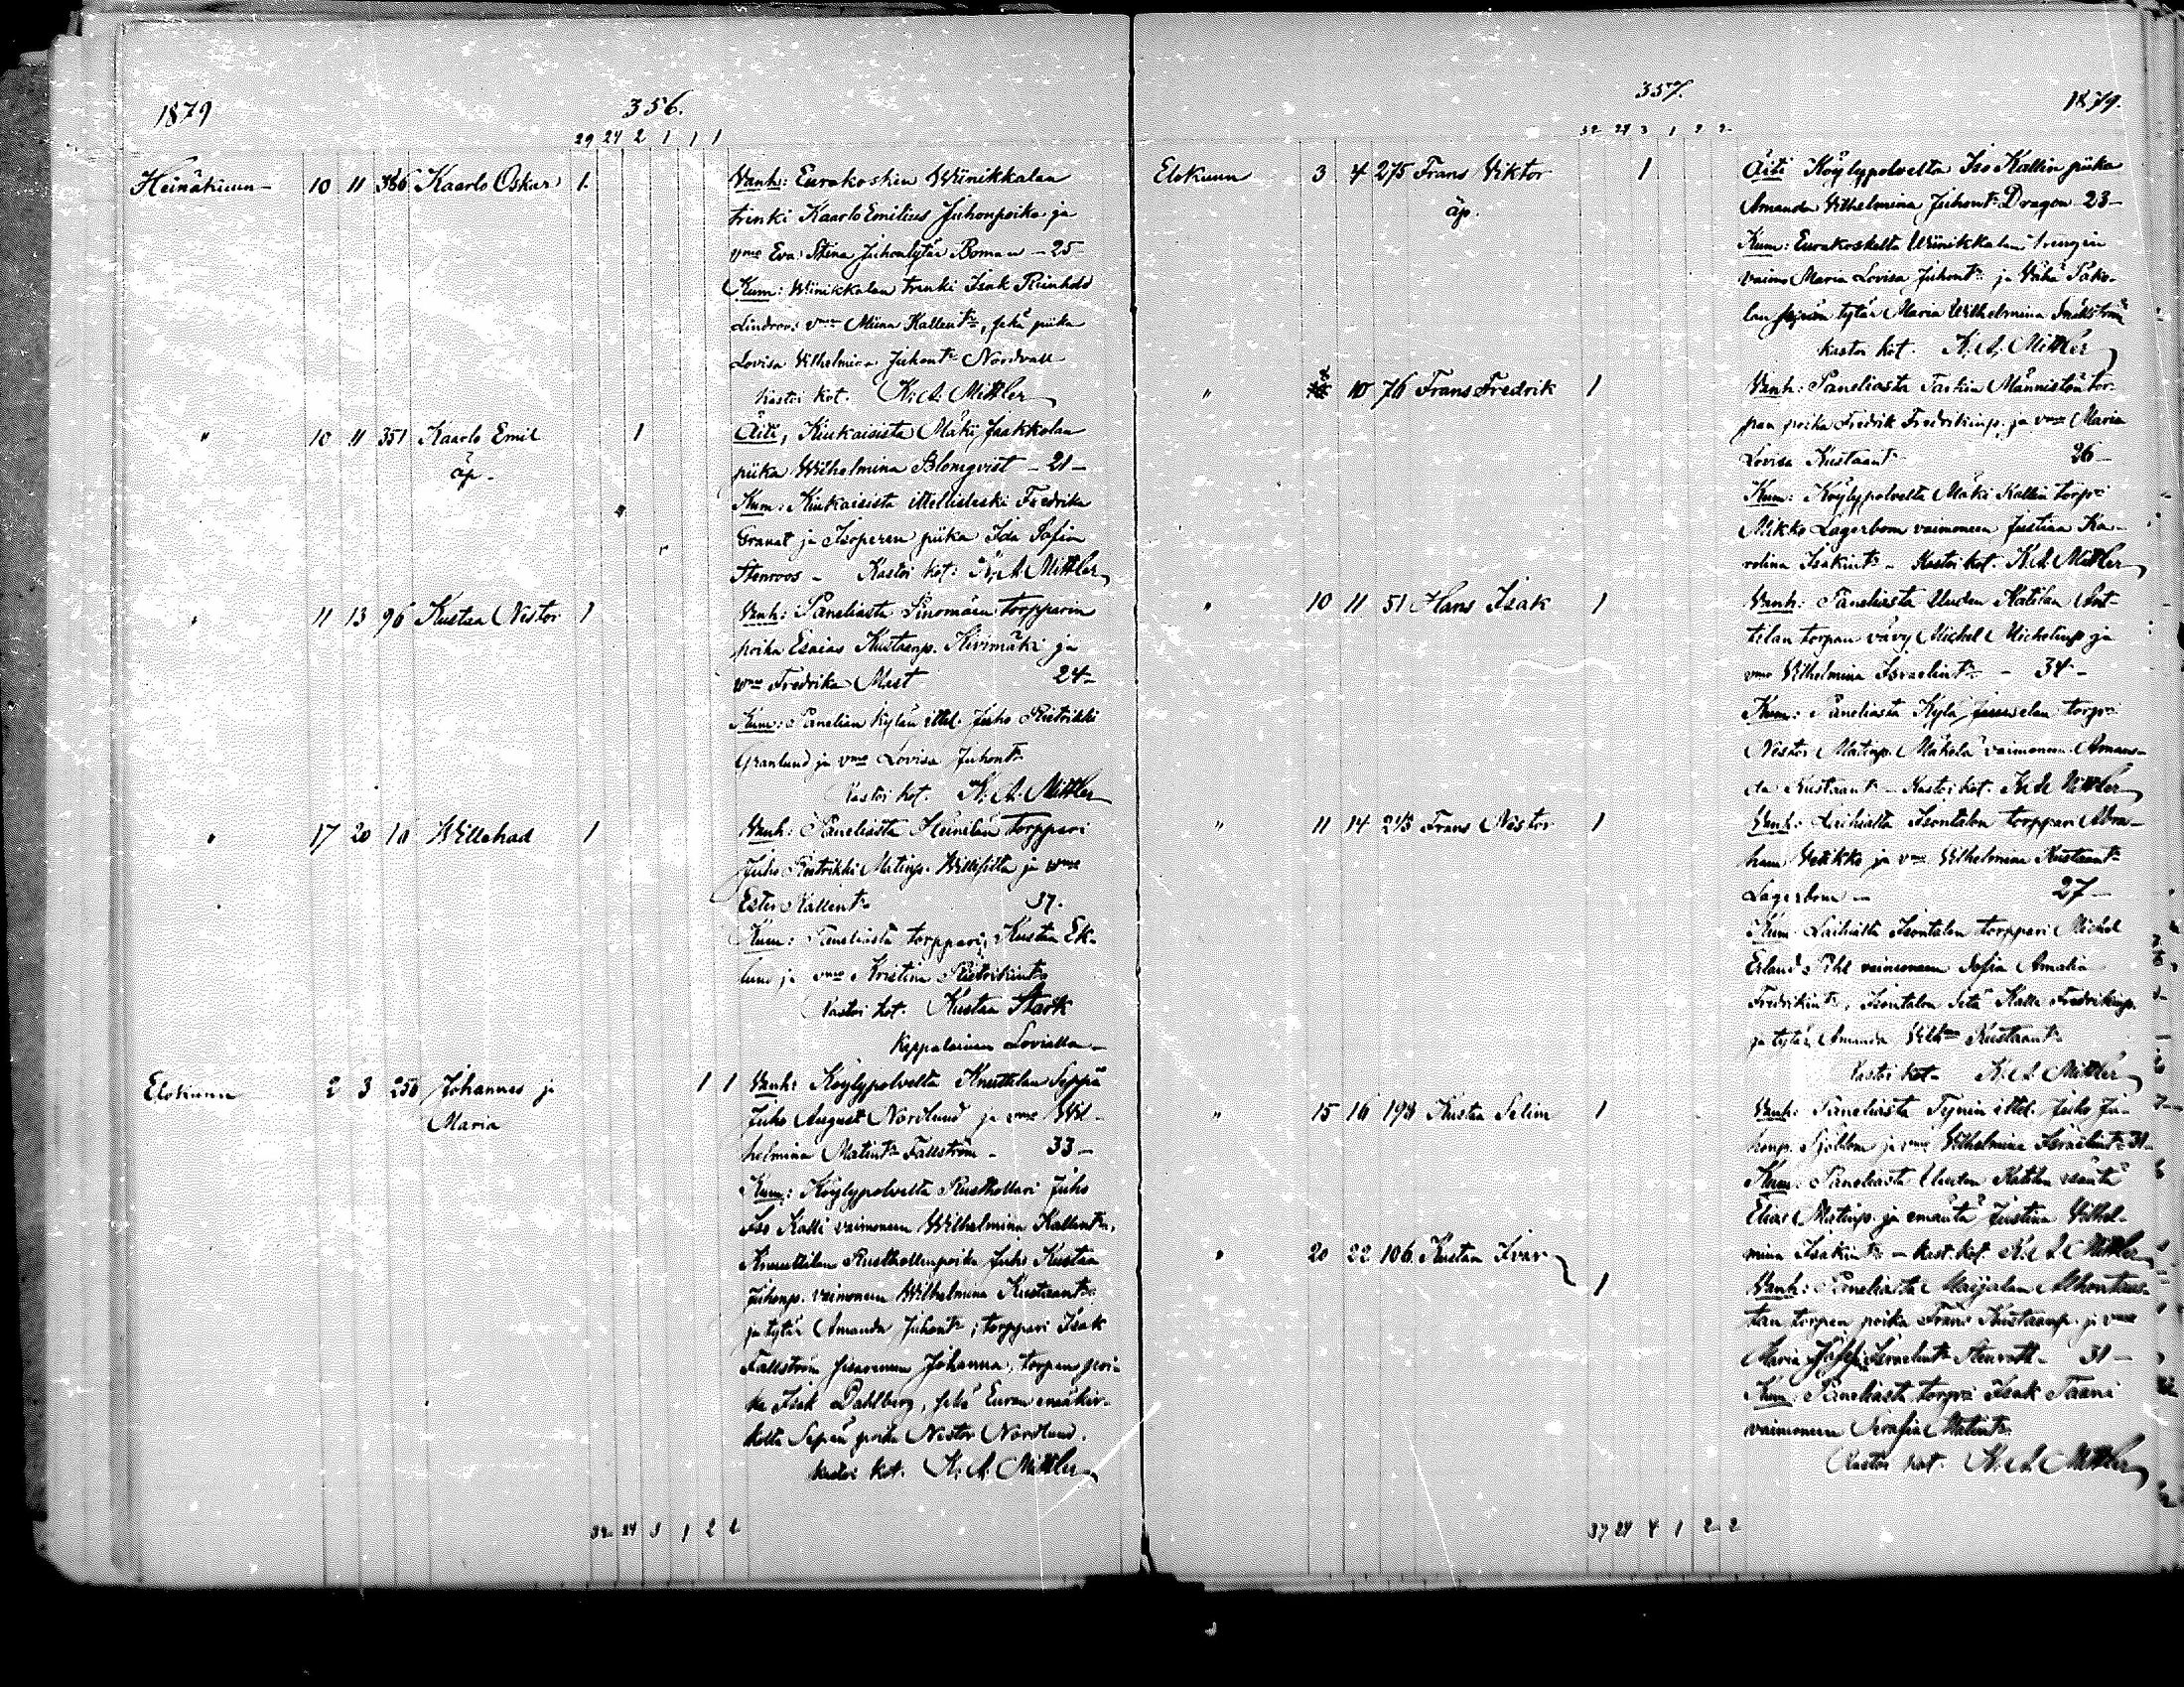 1879
356.
29 24 2 1 1 1
Heinäkuun 10 11 386 Kaarlo Oskar 1. Vanh: Eurakosken Wiinikkalan
trinki Kaarlo Emilius Juhonpoika ja
vmo Eva Stina Juhontytär Boman - 25
Kum: Wiinikkalan trenki Isak Reinhold
Lindroos vmo Miina Kallentr, sekä piika
Lovisa Vilhelmina Juhontr Nordvall
Kastoi kot. K. A. Mittler
" 10 11 351 Kaarlo Emil 1 Äiti, Kiukaisista Mäki Jaakkolan
äp. piika Wilhelmina Blomqvist - 21 -
Kum: Kiukaisista ittellisleski Fredrika
Granat ja Isoperen piika Ida Sofia
Stenroos - Kastoi kot: K. A. Mittler
" 11 13 96 Kustaa Nestor 1 Vanh: Paneliasta Sinomäen torpparin
poika Esaias Kustaanp. Kivimäki ja
vmo Fredrika Mast 24-
Kum: Panelian kylän ittel. Juho Rietrikki
Granlund ja vmo Lovisa Juhontr
Kastoi kot. K. A. Mittler
" 17 20 10 Willehad 1 Vanh: Paneliasta Heinilän torppari
Juho Rietrikki Matinp. ja vmo
Ester Kallentr 37.
Kum: Paneliasta torppari Kustaa Ek-
lund ja vmo Kristina Rietrikintr
Kastoi kot. Kustaa Stark
Kappalainen
Elokuun 2 3 256 Johannes ja 1 1 Vanh: Köylypolvelta Knuttilan Seppä
Maria Juho August Nordlund ja vmo Wil-
helmina Matintr Fallström - 33 -
Kum: Köylypolvelta Rusthollari Juho
Iso Kalli vaimoneen Wilhelmina Kallentr,
Knuuttilan Rusthollinpoika Juho Kustaa
Juhonp. vaimoneen Wilhelmina Kustaantr
ja tytär Amanda Juhontr; torppari Isak
Fallström sisarenneen Johanna, torpan poi-
ka Isak Dahlberg, sekä Euran emäkir-
kolta Sepän poika Nestor Nordlund.
kastoi kot. K. A. Mittler
32 24 3 1 2 2
357.
1879.
32 24 3 1 2 2
Elokuun 3 4 275 Frans Viktor 1 Äiti Köylypolvelta Iso Kallin piika
äp. Amanda Vilhelmina Juhontr Dragon 23-
Kum: Eurakoskelta Wiinikkalan trengin
vaimo Maria Lovisa Juhontr ja Vähä
lan tytär Maria Wilhelmina
kastoi kot. K. A. Mittler
" 10 76 Frans Fredrik 1 Vanh: Paneliasta Männistön tor-
pan poika Fredrik Fredrikinp. ja vmo Maria
Lovisa Kustaantr 26-
Kum: Köylypolvelta Mäki Kallin torpri
Mikko Lagerbom vaimoneen Justina Ka-
rolina Isakintr - Kastoi kot. K. A. Mittler
" 10 11 51 Hans Isak 1 Vanh: Paneliasta Uuden Katilan Ant-
tilan torpan vävy Michel Michelinp ja
vmo Vilhelmina Israelintr - 34 -
Kum: Paneliasta Kylä torpri
Nestor Matinp. Mäkelä vaimoneen Aman-
da Kustaantr - Kastoi kot. K. A. Mittler
" 11 14 243 Frans Nestor 1 Vanh: Isontalon torppari Abra-
ham ja vmo Vilhelmina Kustaantr
Lagerbom - 27-
Kum: Isontalon torppari Michel
Erland vaimoneen Sofia Amalia
Fredrikintr, Isontalon Setä Kalle Fredrikinp.
ja tytär Amanda Vilhna Kustaantr
Kastoi kot. K. A. Mittler
" 15 16 198 Kustaa Selim 1 Vanh: Paneliasta ittel. Juho Ju-
honp. Sjöblom ja vmo Vilhelmina Israelintr 31-
Kum: Paneliasta Uuden Katilan isäntä
Elias Matinp. ja emäntä Justina Vilhel-
mina Isakintr - kast. kot. K. A. Mittler
" 20 22 106 Kustaa Ivar 1 Vanh: Paneliasta Maijalan
tan torpan poika Frans Kustaanp. ja vmo
Maria Israelintr Stenroth - 31 -
Kum: Paneliasta torpri Isak Taani
vaimoneen Serafia Matintr
Kastoi kot. K. A. Mittler
37 24 4 1 2 2